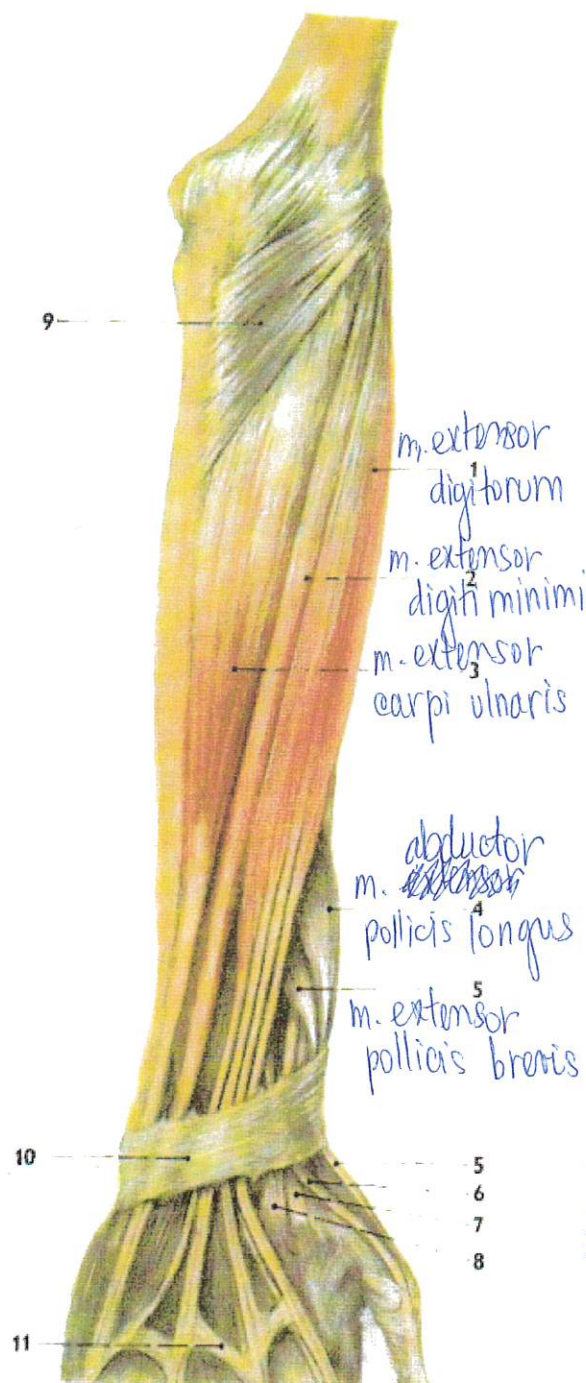 9
m. extensor
1
digitorum
m. extensor
2
digiti minimi
m. extensor
3
carpi ulnaris
abductor
m.
4
pollicis longus
5
m. extensor
pollicis brevis
10
5
6
7
8
11